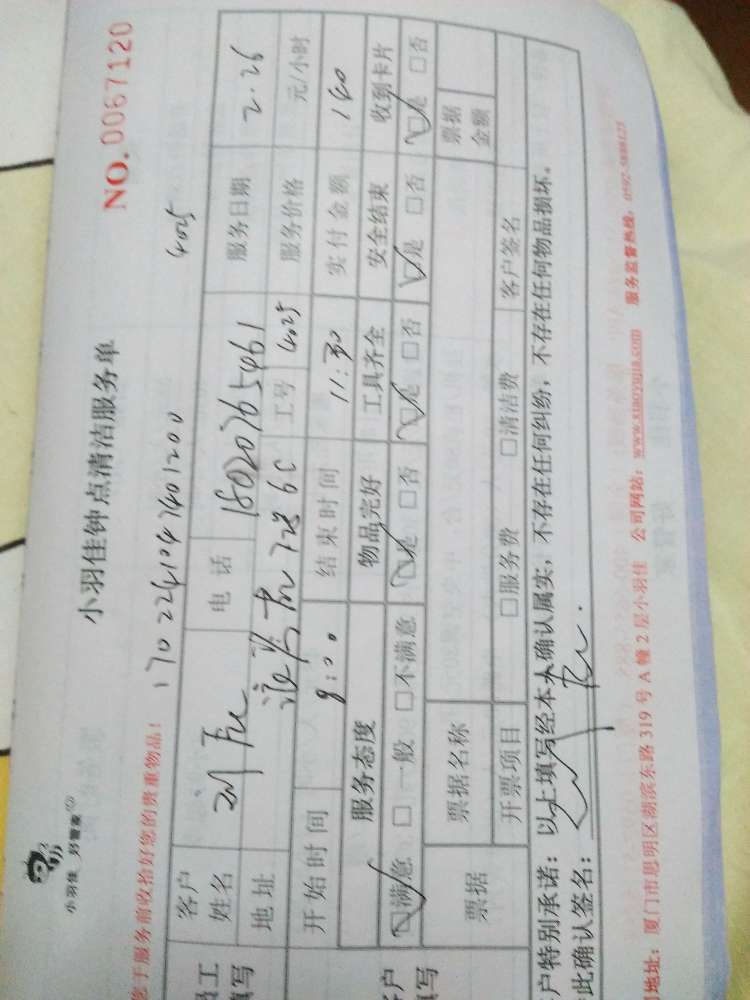 小羽佳 好管家
小羽佳钟点清洁服务单
NO. 0067120
您于服务前收拾好您的贵重物品! 1702241047401200 4025
员工填写
客户姓名 刘 电话 服务日期 2.26
地址 工号 4025 服务价格 元/小时
开始时间 8:00 结束时间 11:30 实付金额 140
客户填写
服务态度 物品完好 工具齐全 安全结束 收到卡片
☑满意 □一般 □不满意 ☑是 □否 ☑是 □否 ☑是 □否 ☑是 □否
票据 票据名称 票据金额
开票项目 □服务费 □清洁费 客户签名
户特别承诺: 以上填写经本人确认属实, 不存在任何纠纷, 不存在任何物品损坏。
此确认签名:
地址: 厦门市思明区湖滨东路 319 号 A 幢 2 层小羽佳 公司网站: www.xiaoyujia.com 服务监督热线: 0592-5888123